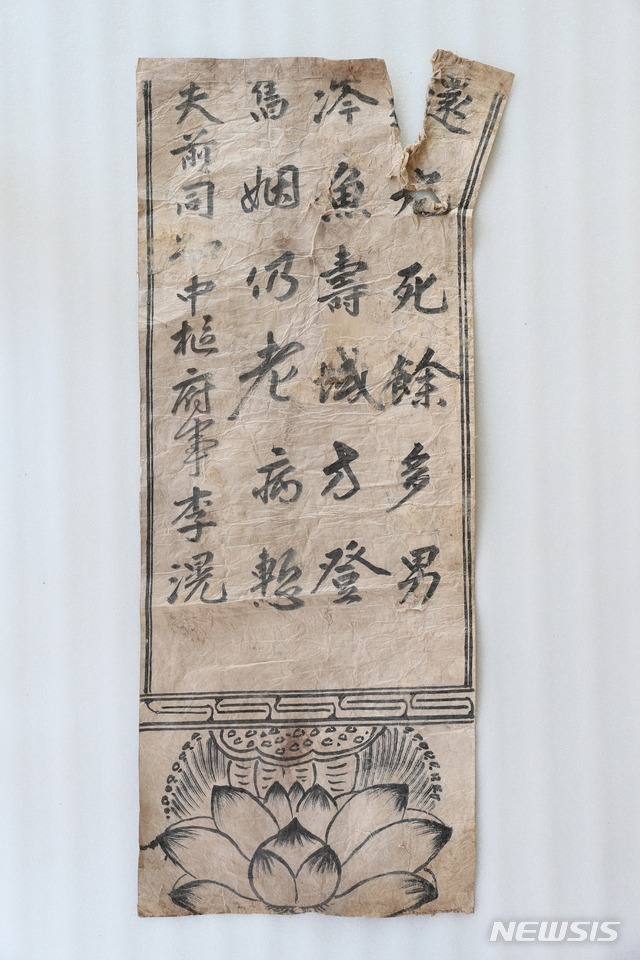 還死餘多男
魚壽域方登
馬姻仍老病
夫前同知中樞府事李滉
NEWSIS